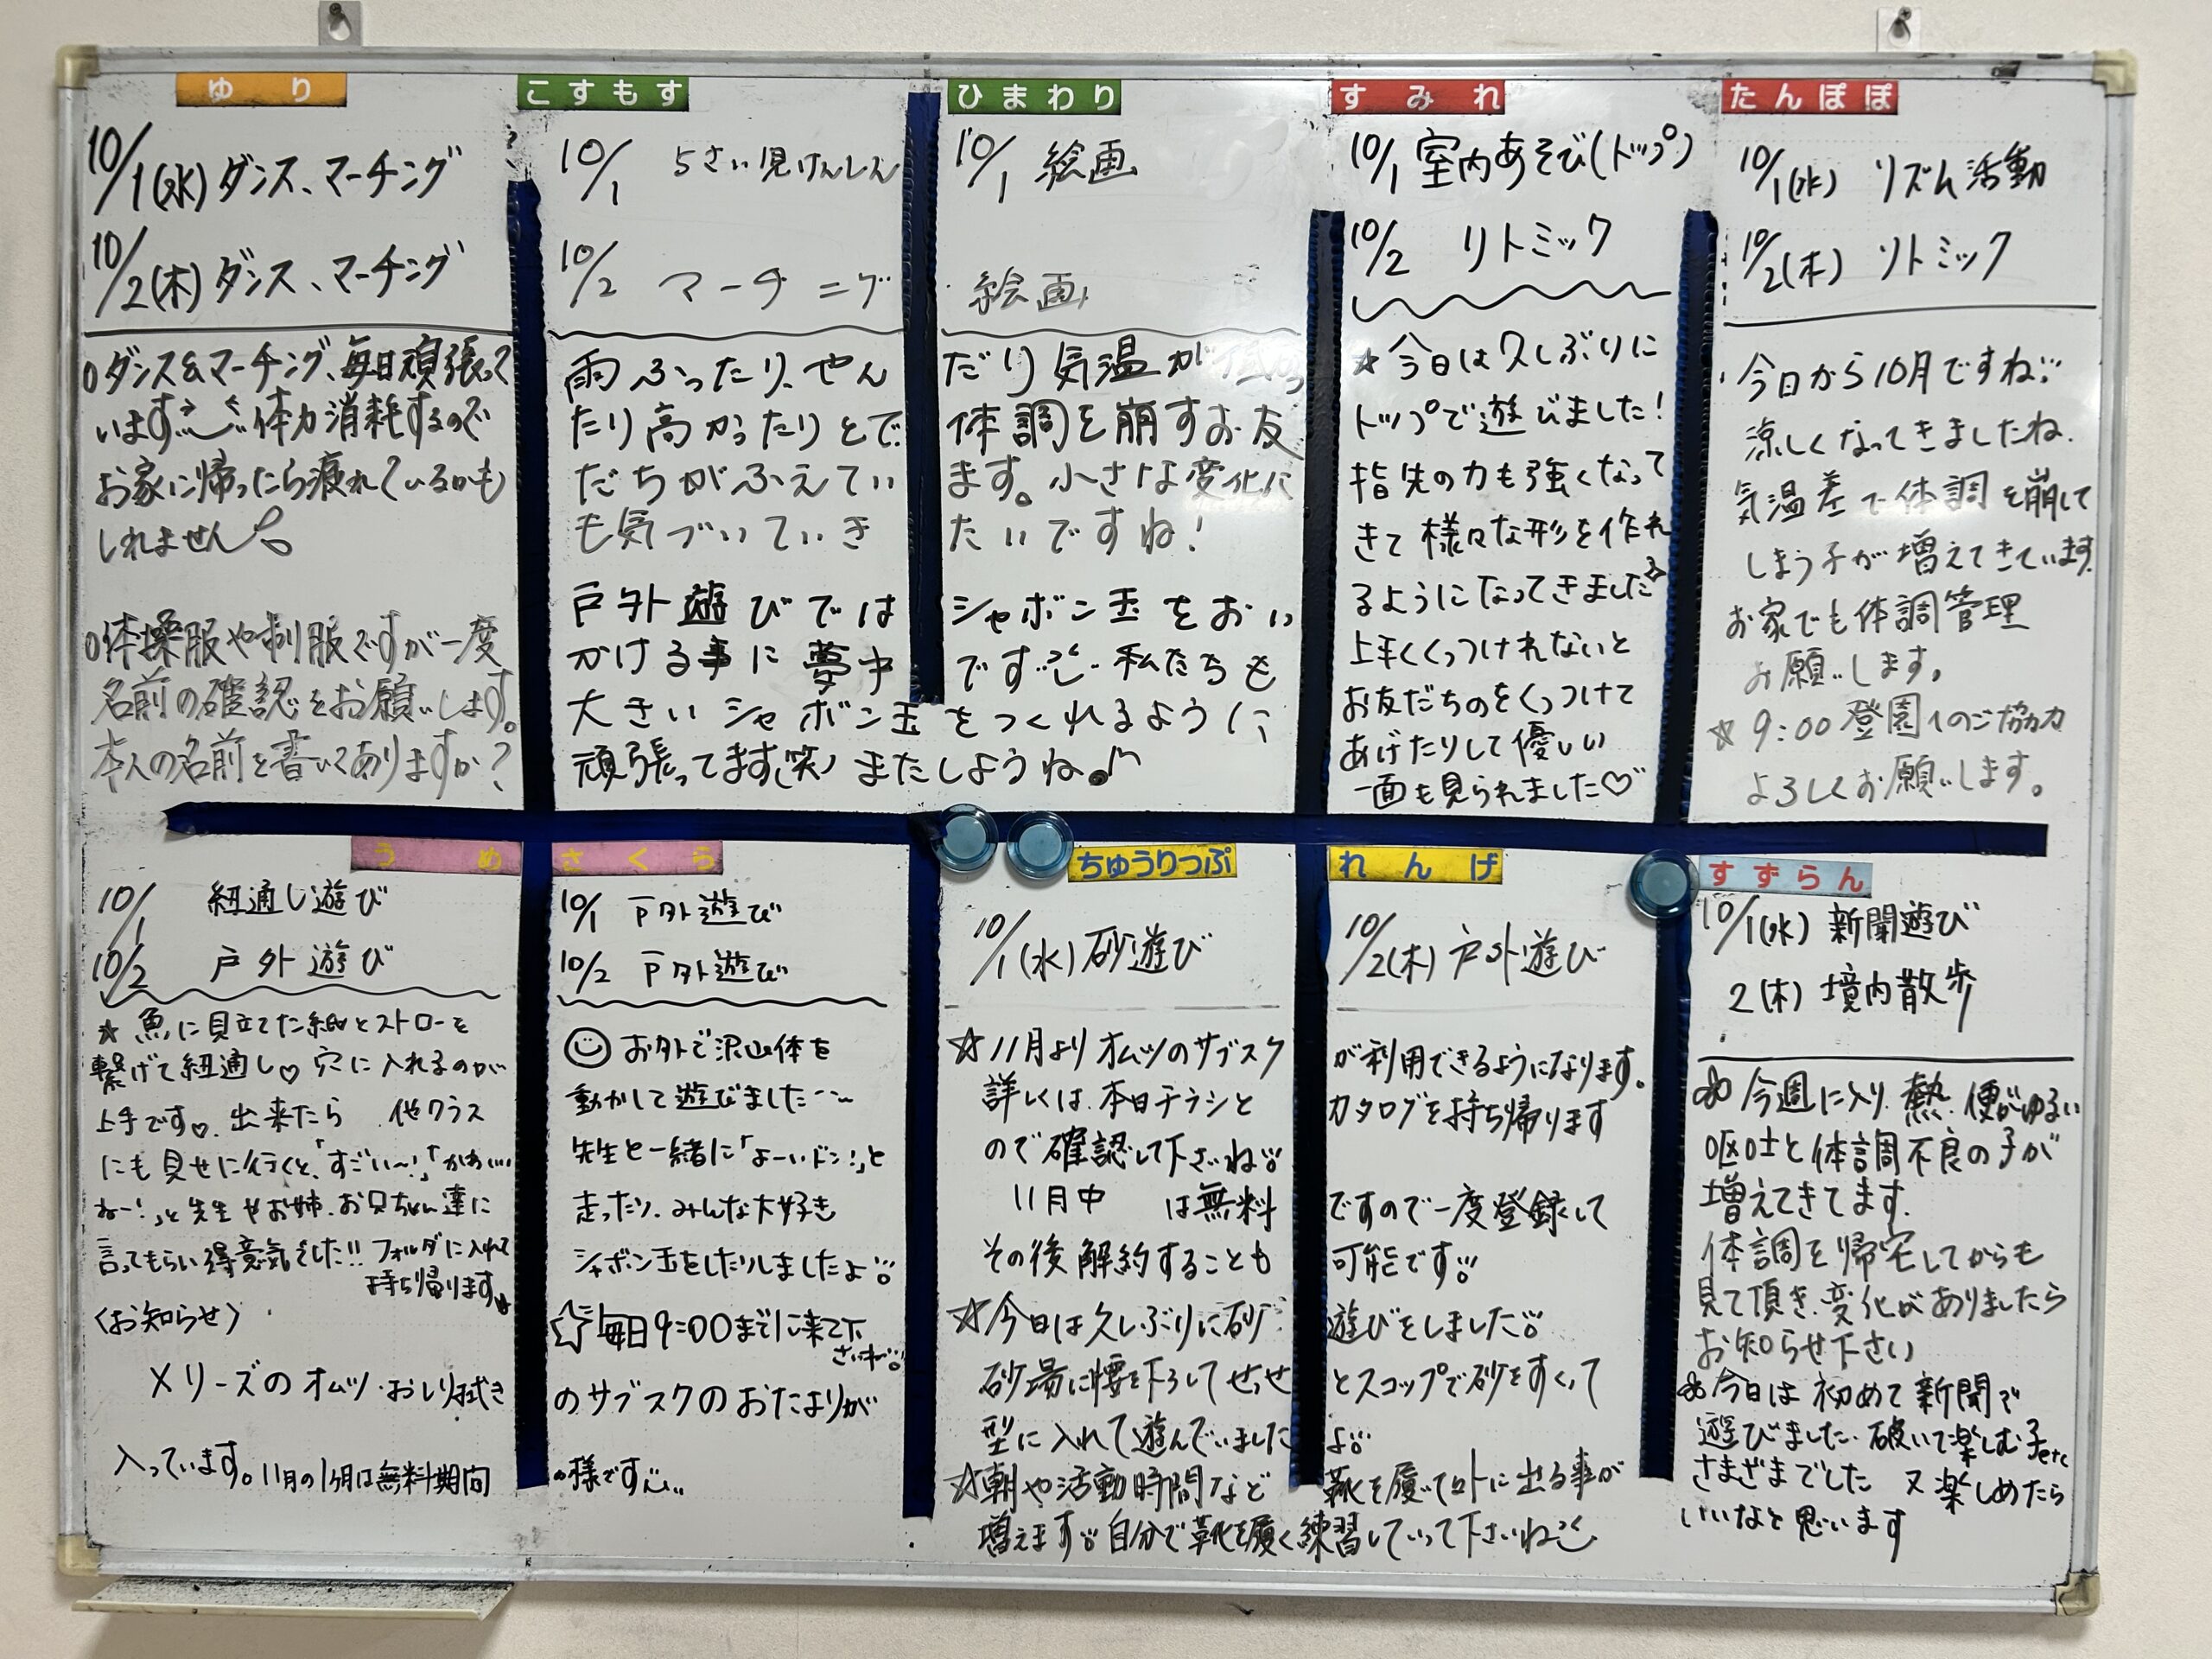 ゆり
10/1(水) ダンス、マーチング
10/2(木) ダンス、マーチング
○ダンス&マーチング、毎日頑張って
います 体力消耗するので
お家に帰ったら疲れているかも
しれません
○体操服や制服ですが一度
名前の確認をお願いします。
本人の名前を書いてありますか?
こすもす
10/1 5さい児けんしん
10/2 マーチング
ひまわり
10/1 絵画
絵画
雨ふったり、やん だり気温が低かっ
たり高かったりとで 体調を崩すお友
だちがふえてい ます。小さな変化に
も気づいていき たいですね!
戸外遊びでは シャボン玉をおい
かける事に夢中 です 私たちも
大きいシャボン玉をつくれるように、
頑張ってます(笑) またしようね♪
すみれ
10/1 室内あそび(トップ)
10/2 リトミック
☆今日は久しぶりに
トップで遊びました!
指先の力も強くなって
きて様々な形を作れ
るようになってきました
上手くくっつけれないと
お友だちのをくっつけて
あげたりして優しい
一面も見られました♡
たんぽぽ
10/1(水) リズム活動
10/2(木) リトミック
今日から10月ですね
涼しくなってきましたね.
気温差で体調を崩して
しまう子が増えてきています.
お家でも体調管理
お願いします。
☆9:00登園へのご協力
よろしくお願いします。
うめ
10/1 紐通し遊び
10/2 戸外遊び
☆魚に見立てた紙とストローを
繋げて紐通し♡穴に入れるのが
上手です♡ 出来たら 他クラス
にも見せに行くと、「すごい〜!」「かわいい
ねー!」と先生やお姉、お兄ちゃん達に
言ってもらい得意気でした!! フォルダに入れて
持ち帰ります
さくら
10/1 戸外遊び
10/2 戸外遊び
お外で沢山体を
動かして遊びました
先生と一緒に「よーいドン!」と
走ったり、みんな大好き
シャボン玉をしたりしましたよ
☆毎日9:00までに来て下
さいね
〈お知らせ〉
メリーズのオムツ・おしり拭き のサブスクのおたよりが
入っています。11月の1ヶ月は無料期間 の様です
ちゅうりっぷ
10/1(水) 砂遊び
れんげ
10/2(木) 戸外遊び
☆11月よりオムツのサブスク が利用できるようになります。
詳しくは、本日チラシと カタログを持ち帰ります
ので確認して下さいね
11月中 は無料 ですので一度登録して
その後解約することも 可能です
☆今日は久しぶりに砂 遊びをしました
砂場に腰を下ろしてせっせ とスコップで砂をすくって
型に入れて遊んでいました よ
☆朝や活動時間など 靴を履いて外に出る事が
増えます 自分で靴を履く練習していって下さいね
すずらん
10/1(水) 新聞遊び
2(木) 境内散歩
今週に入り、熱、便がゆるい
嘔吐と体調不良の子が
増えてきてます.
体調を帰宅してからも
見て頂き、変化がありましたら
お知らせ下さい
今日は初めて新聞で
遊びました. 破いて楽しむ子etc
さまざまでした 又楽しめたら
いいなと思います